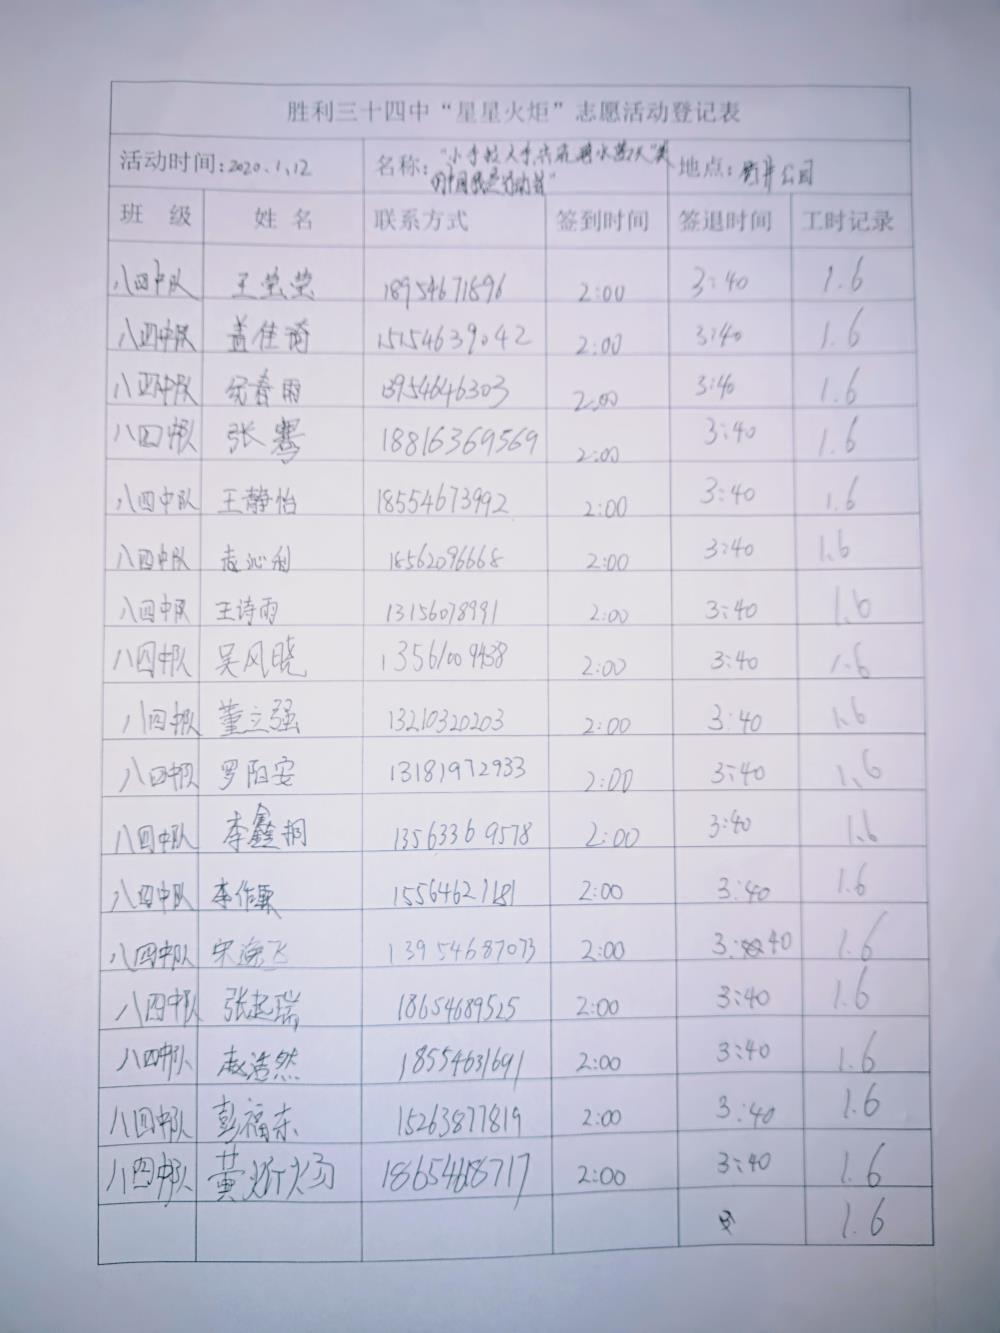 胜利三十四中“星星火炬”志愿活动登记表
活动时间:2020.1.12 名称:“小手拉大手 地点: 公司
班 级 姓 名 联系方式 签到时间 签退时间 工时记录
八四中队 王莹莹 18954671896 2:00 3:40 1.6
八四中队 盖佳琦 15154639042 2:00 3:40 1.6
八四中队 春雨 13954646303 2:00 3:40 1.6
八四中队 张骞 18816369569 2:00 3:40 1.6
八四中队 王静怡 18554673992 2:00 3:40 1.6
八四中队 沁利 18562096668 2:00 3:40 1.6
八四中队 王诗雨 13156078991 2:00 3:40 1.6
八四中队 吴风晓 13561009438 2:00 3:40 1.6
八四中队 董立强 13210320203 2:00 3:40 1.6
八四中队 罗阳安 13181972933 2:00 3:40 1.6
八四中队 李鑫桐 13563369578 2:00 3:40 1.6
八四中队 李作霖 15564621181 2:00 3:40 1.6
八四中队 宋逸飞 13954687073 2:00 3:40 1.6
八四中队 张起瑞 18654689525 2:00 3:40 1.6
八四中队 赵浩然 18554631691 2:00 3:40 1.6
八四中队 彭福东 15263877819 2:00 3:40 1.6
八四中队 黄炘炀 18654618717 2:00 3:40 1.6
1.6